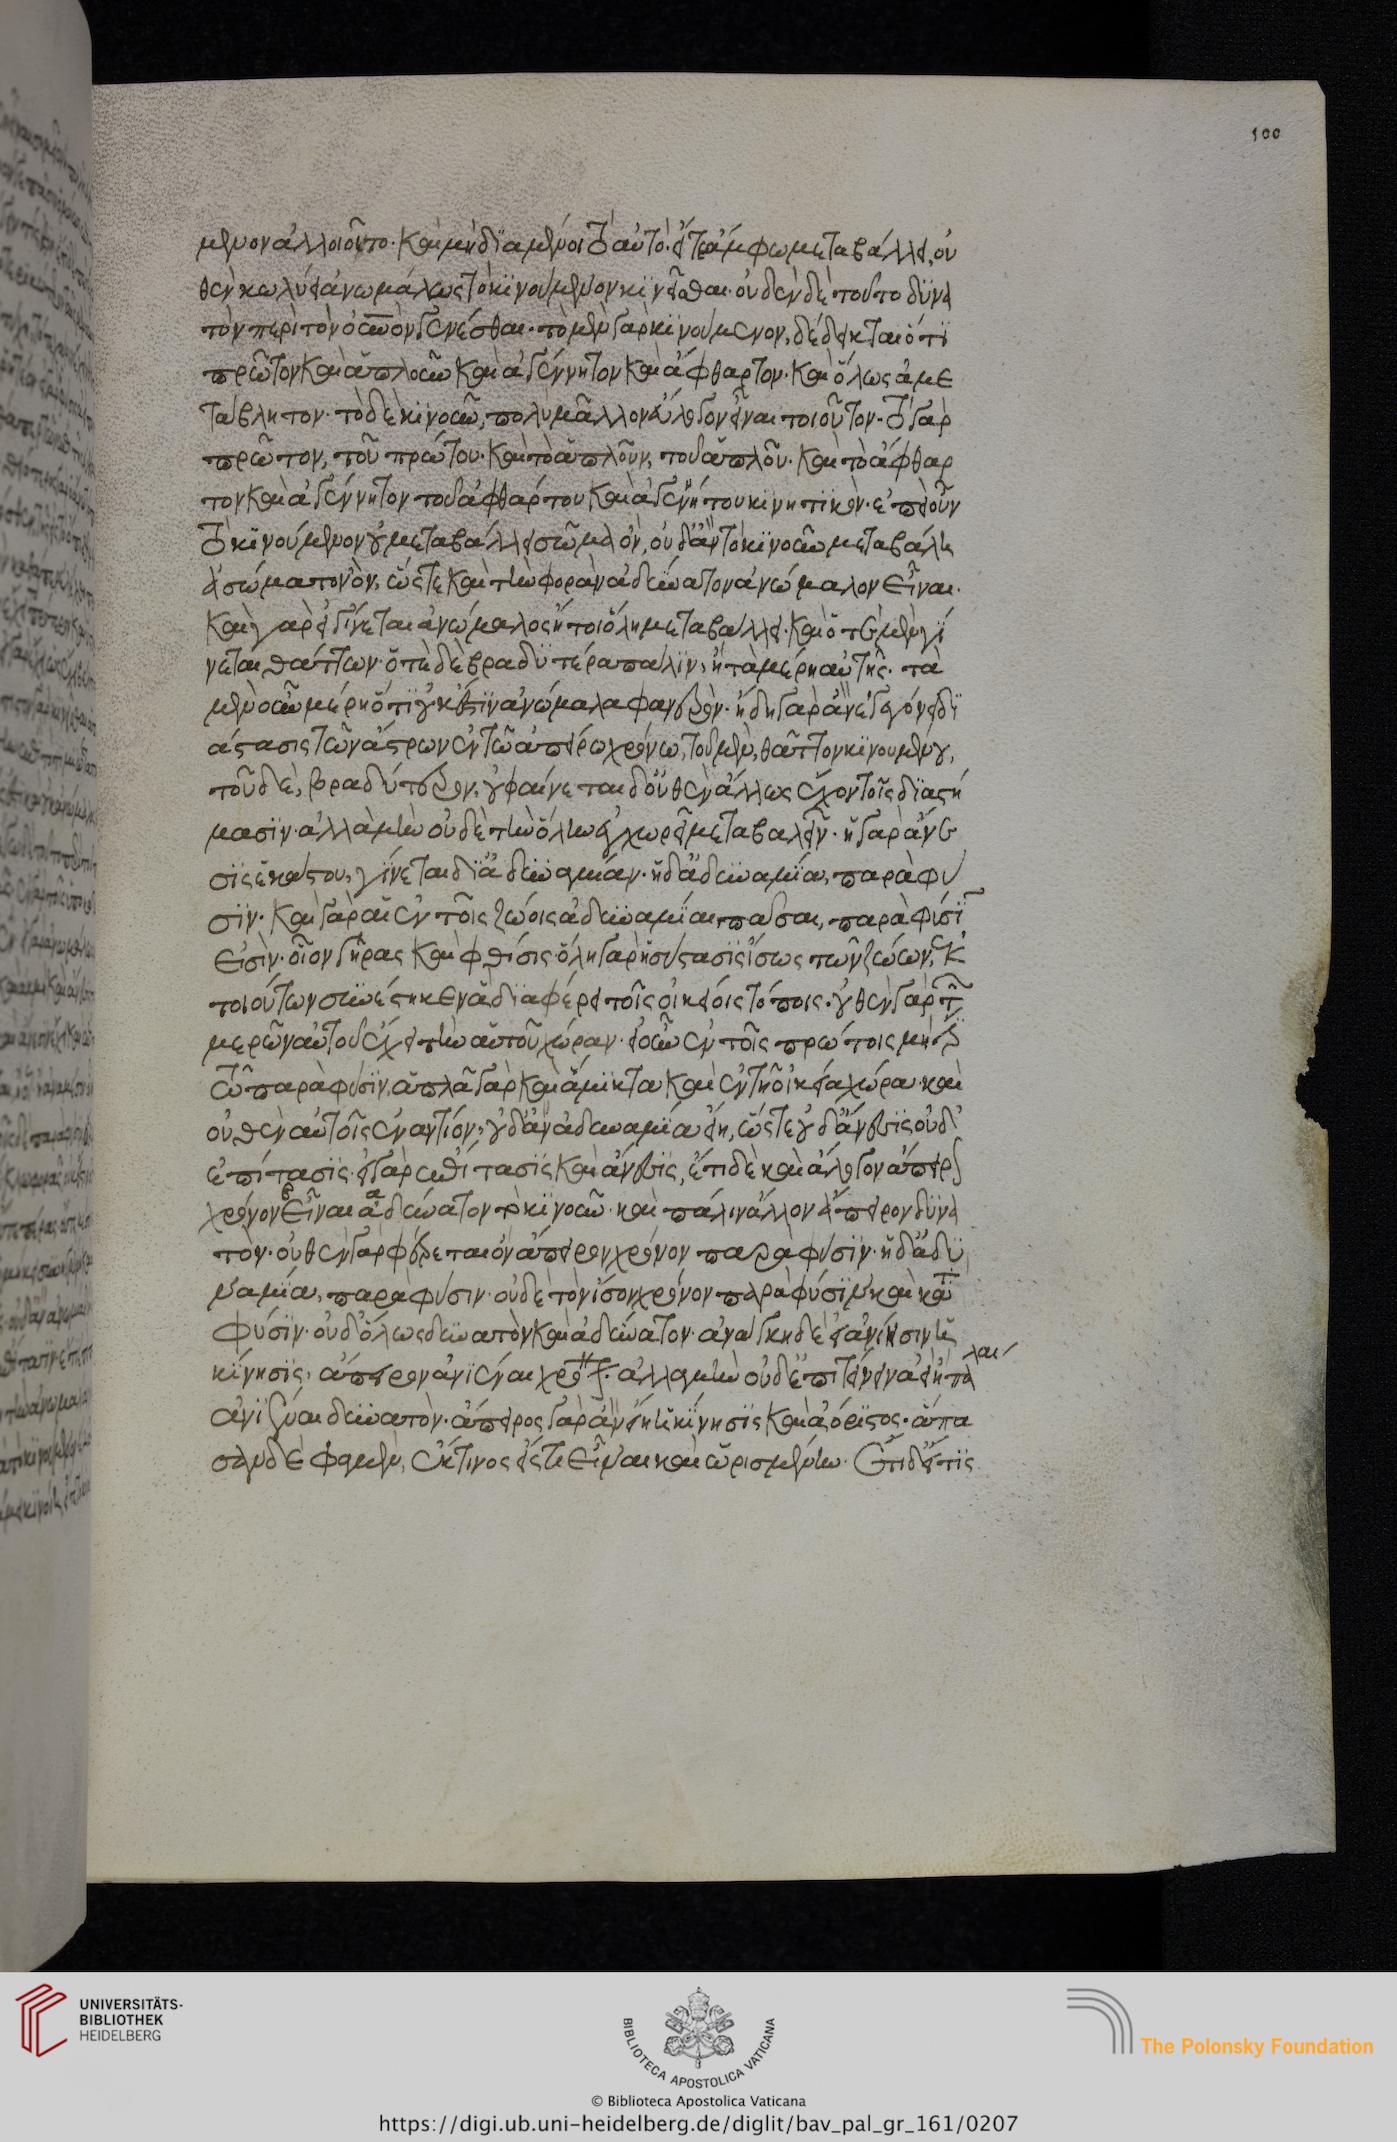 μενον ἀλλοιοῦντο· καὶ μὴ διαμένοι τὸ αὐτό· εἴτε ἄμφω μεταβάλλει, οὐ
θὲν κωλύει ἀνωμάλως τὸ κινούμενον κινεῖσθαι· οὐδὲν δὲ τούτο δυνα
τὸν περὶ τὸν οὐνὸν γενέσθαι· τὸ μὲν γὰρ κινούμενον, δέδεικται ὅτι
πρῶτον καὶ ἁπλοῦν καὶ ἀγέννητον καὶ ἄφθαρτον· καὶ ὅλως ἀμε
τάβλητον· τὸ δὲ κινοῦν, πολὺ μᾶλλον εὔλογον εἶναι τοιοῦτον· τὸ γὰρ
πρῶτον, τοῦ πρώτου· καὶ τὸ ἁπλοῦν, τοῦ ἁπλοῦ· καὶ τὸ ἄφθαρ
τον καὶ ἀγέννητον τοῦ ἀφθάρτου καὶ ἀγεννήτου κινητικόν· ἐπεὶ οὖν
τὸ κινούμενον οὐ μεταβάλλει σῶμα ὄν, οὐδ' ἂν τὸ κινοῦν μεταβάλοι
ἀσώματον ὄν, ὥστε καὶ τὴν φορὰν ἀδύνατον ἀνώμαλον εἶναι·
καὶ γὰρ εἰ γίνεται ἀνώμαλος ἤτοι ὅλη μεταβάλλει· καὶ ὅτε μὲν γί
νεται θάττων· ὅτε δὲ βραδυτέρα πάλιν, ἢ τὰ μέρη αὐτῆς· τὰ
μὲν οὖν μέρη ὅτι οὐκ ἔστιν ἀνώμαλα φανερόν· ἤδη γὰρ ἂν ἐγεγόνει δι
άστασις τῶν ἄστρων ἐν τῶ ἀπείρω χρόνω, τοῦ μὲν, θᾶττον κινουμένου,
τοῦ δὲ, βραδύτερον, οὐ φαίνεται δ' οὐθὲν ἄλλως ἔχον τοῖς διαστή
μασιν· ἀλλὰ μὴν οὐδὲ τὴν ὅλην ἐγχωρεῖ μεταβαλεῖν· ἡ γὰρ ἄνε
σις ἑκάστου, γίνεται δι' ἀδυναμίαν· ἡ δ' ἀδυναμία, παρὰ φύ
σιν· καὶ γὰρ αἱ ἐν τοῖς ζώοις ἀδυναμίαι πᾶσαι, παρὰ φύσιν
εἰσὶν· οἷον γῆρας καὶ φθίσις· ὅλη γὰρ ἡ σύστασις ἴσως τῶν ζώων, ἐκ
τοιούτων συνέστηκεν ἃ διαφέρει τοῖς οἰκείοις τόποις· οὐθὲν γὰρ τῶν
μερῶν αὐτοῦ ἔχει τὴν αὑτοῦ χώραν· εἰ οὖν ἐν τοῖς πρώτοις μή ἐστι
τῶν παρὰ φύσιν, ἁπλᾶ γὰρ καὶ ἄμικτα καὶ ἐν τῇ οἰκεία χώρα καὶ
οὐθὲν αὐτοῖς ἐναντίον, οὐδ' ἂν ἀδυναμία εἴη, ὥστε οὐδ' ἄνεσις οὐδ'
ἐπίτασις· εἰ γὰρ ἐπίτασις καὶ ἄνεσις, ἔτι δὲ καὶ ἄλογον ἄπειρον
χρόνον εἶναι ἀδύνατον τὸ κινοῦν· καὶ πάλιν ἄλλον ἄπειρον δυνα
τόν· οὐθὲν γὰρ φέρεται ὂν ἄπειρον χρόνον παρὰ φύσιν· ἡ δ' ἀδυ
ναμία, παρὰ φύσιν· οὐδὲ τὸν ἴσον χρόνον παρὰ φύσιν καὶ κατὰ
φύσιν· οὐδ' ὅλως δυνατὸν καὶ ἀδύνατον· ἀνάγκη δὲ εἰ ἀνίησιν ἡ
κίνησις, ἄπειρον ἀνιέναι χρόνον· ἀλλὰ μὴν οὐδ' ἐπιτείνειν ἀεὶ ἢ πά
ανιέναι δυνατόν· ἄπειρος γὰρ ἂν εἴη ἡ κίνησις καὶ ἀόριστος· ἅπα
σαν δὲ φαμεν, ἔκ τινος εἴς τι εἶναι καὶ ὡρισμένην· ἔτι δ' εἴ τις
100
UNIVERSITÄTS-
BIBLIOTHEK
HEIDELBERG
BIBLIOTECA APOSTOLICA VATICANA
© Biblioteca Apostolica Vaticana
The Polonsky Foundation
https://digi.ub.uni-heidelberg.de/diglit/bav_pal_gr_161/0207